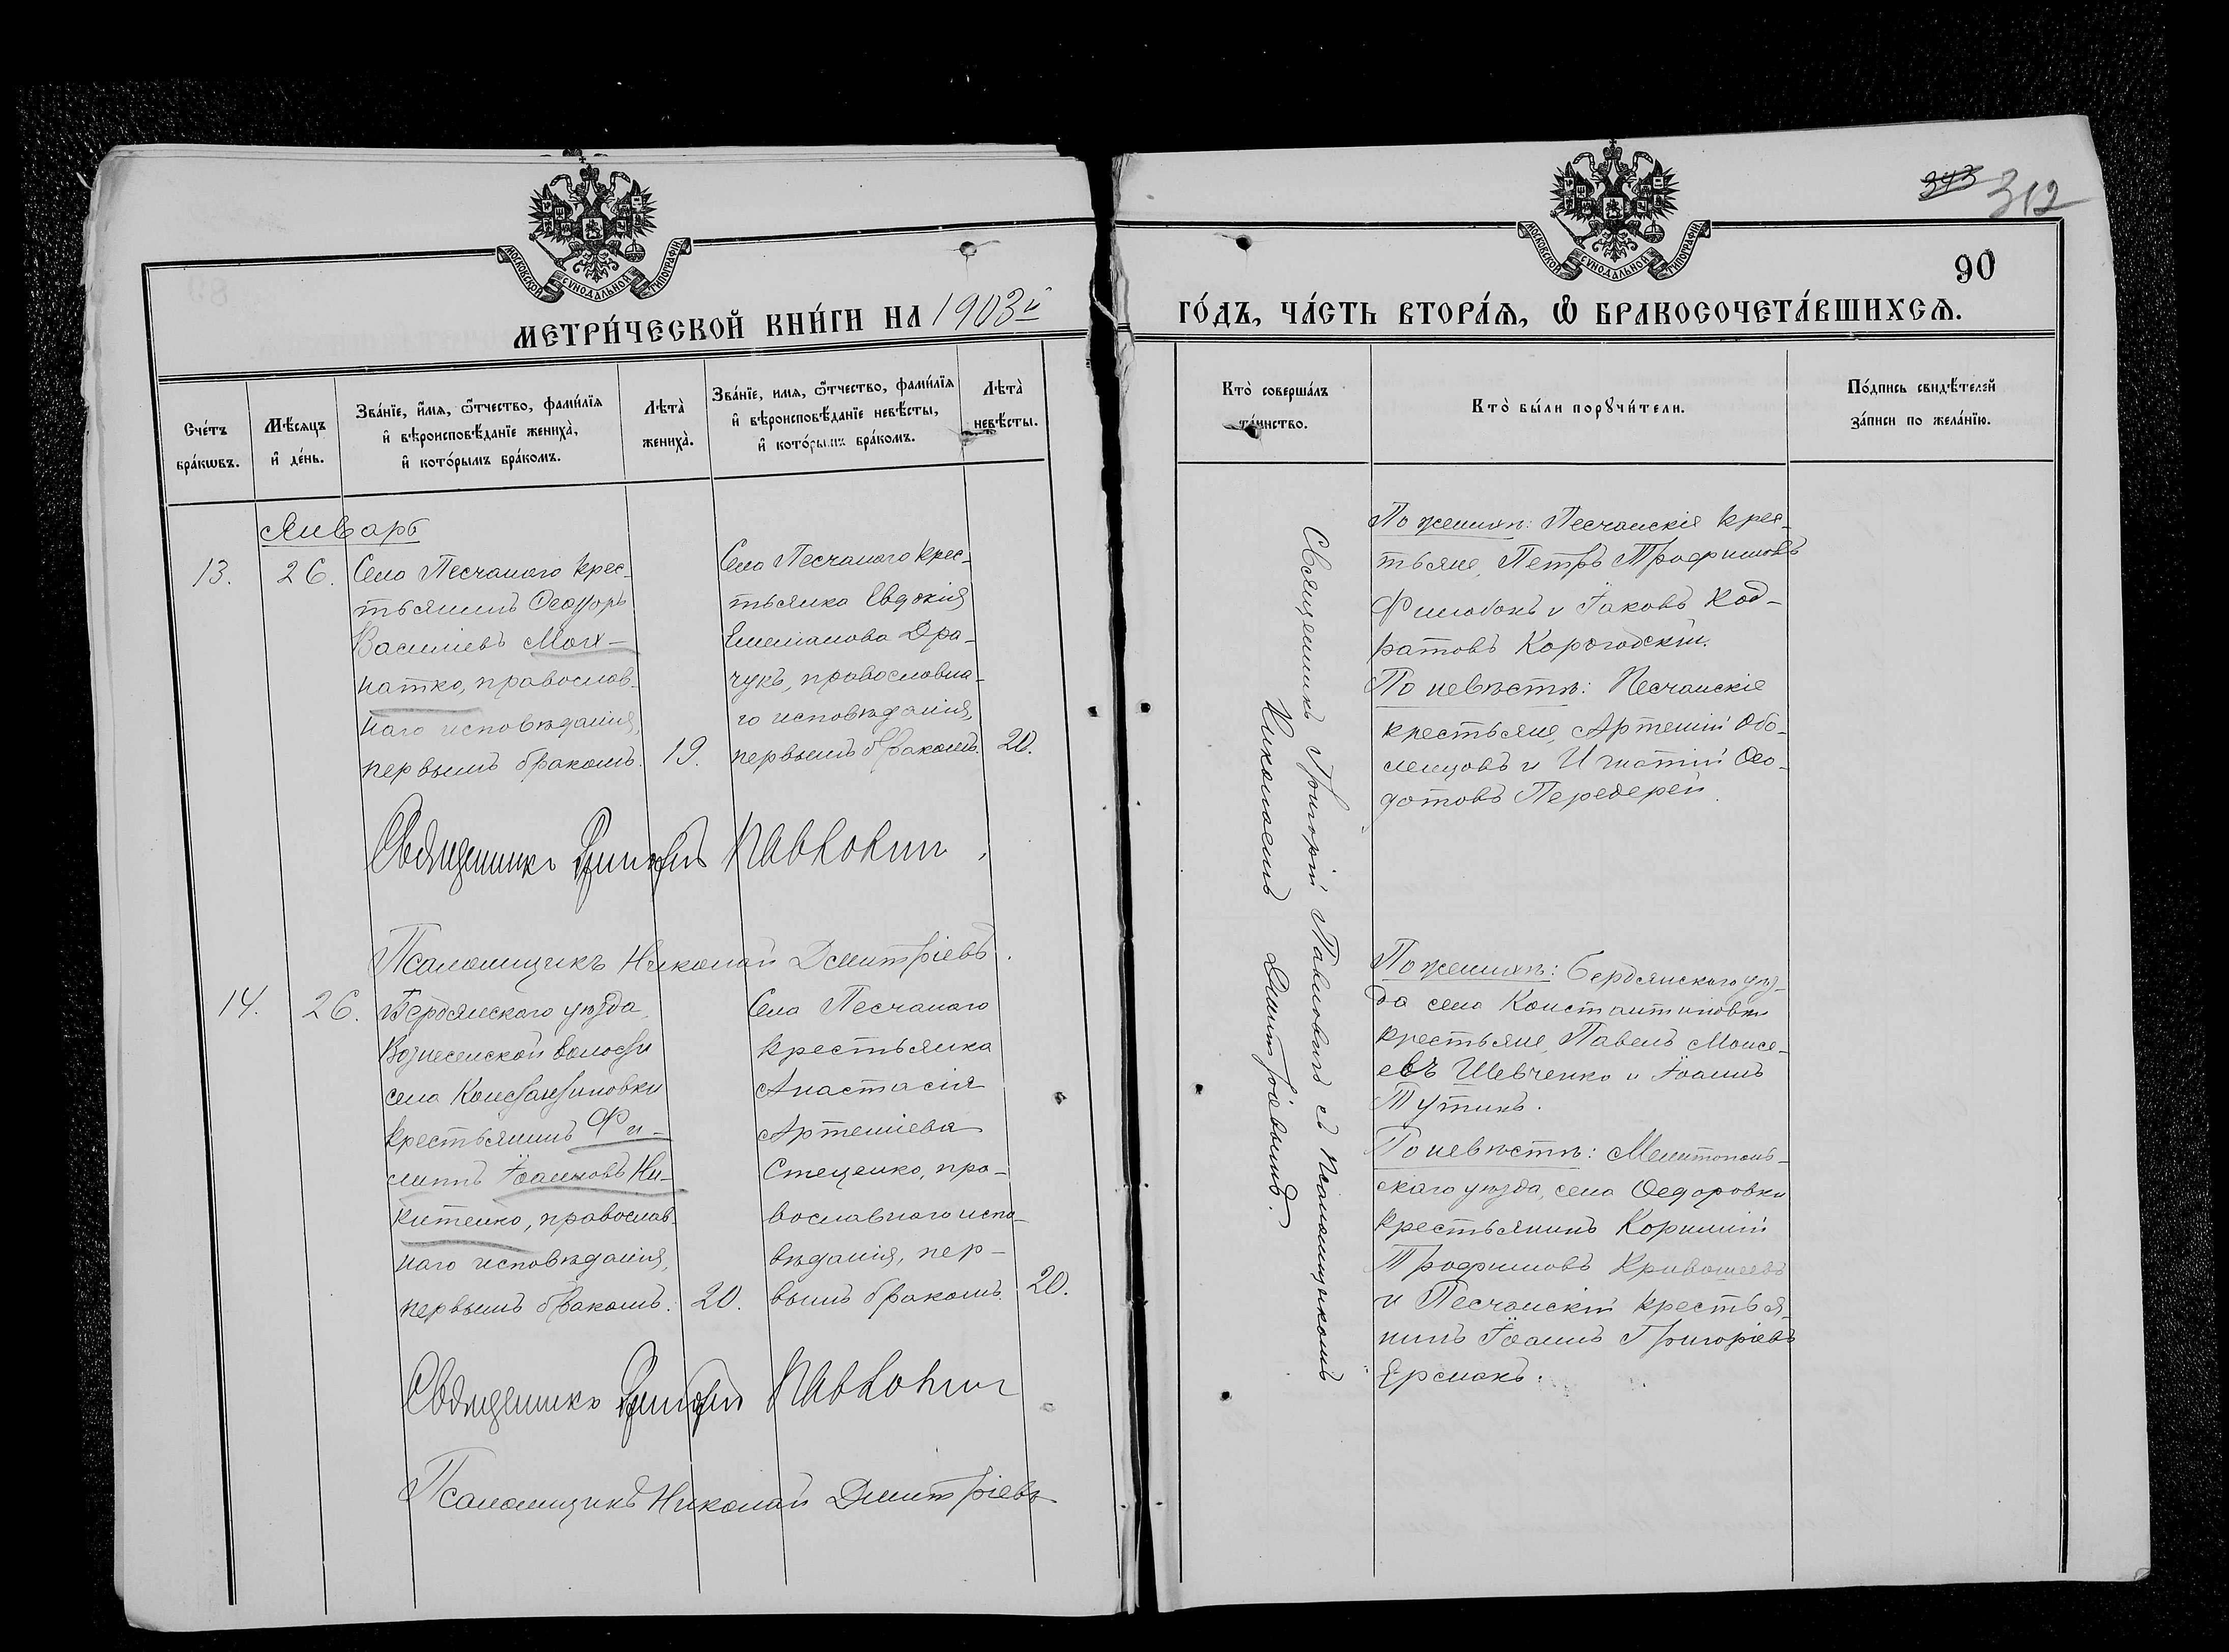 МОСКОВСКОЙ СѴНОДАЛЬНОЙ ТИПОГРАФІИ
МЕТРИ́ЧЕСКОЙ КНИ́ГИ НА 1903й
Сче́тъ бра́кѡвъ.
Мѣ́сяцъ и҆ де́нь.
Зва́нїе, и҆́мя, ѻ҆́тчество, фами́лїя
и҆ вѣроисповѣ́данїе жениха̀,
и҆ кото́рымъ бра́комъ.
Лѣта̀ жениха̀.
Зва́нїе, имя, ѻ҆́тчество, фами́лїя
и҆ вѣроисповѣ́данїе невѣ́сты,
и҆ кото́рымъ бра́комъ.
Лѣта̀ невѣ́сты.
Январь
13.
26.
Села Песчанаго крес-
тьянинъ Ѳеодоръ
Василіевъ
натко, православ-
наго исповѣданія,
первымъ бракомъ.
19.
Села Песчанаго крес-
тьянка Евдокія
Емеліанова Дра-
чукъ, православна-
го исповѣданія,
первымъ бракомъ.
20.
Священникъ Григорій Павловичъ
Псаломщикъ Николай Дмитріевъ.
14.
26.
Бердянскаго уѣзда,
Вознесенской волости
села Константиновки
крестьянинъ Фи-
липпъ Іоанновъ Ни-
китенко, православ-
наго исповѣданія,
первымъ бракомъ.
20.
Села Песчанаго
крестьянка
Анастасія
Артеміева
Стеценко, пра-
вославнаго испо-
вѣданія, пер-
вымъ бракомъ.
20.
Священникъ Григорій Павловичъ
Псаломщикъ Николай Дмитріевъ
343 312
МОСКОВСКОЙ СѴНОДАЛЬНОЙ ТИПОГРАФІИ
90
ГО́ДЪ, ЧА́СТЬ ВТОРА́Я, Ѡ҆ БРАКОСОЧЕТА́ВШИХСЯ.
Кто̀ соверша́лъ
та́инство.
Кто̀ бы́ли порꙋчи́тели.
По́дпись свидѣ́телей
за́писи по жела́нїю.
Священникъ Григорій Павловичъ съ псаломщикомъ
Николаемъ Дмитріевымъ.
По женихѣ: Песчанскіе крес-
тьяне, Петръ Трофимовъ
и Іаковъ Код-
ратовъ Корогодскій.
По невѣстѣ: Песчанскіе
крестьяне, Артемій Обо-
ленцовъ и Игнатій Ѳео-
дотовъ Передерей.
По женихѣ: Бердянскаго уѣз-
да села Константиновки
крестьяне, Павелъ Моисе-
евъ Шевченко и Іоаннъ
Тутикъ.
По невѣстѣ: Мелитополь-
скаго уѣзда, села Ѳедоровки
крестьянинъ Корнилій
Трофимовъ Кривошеевъ
и Песчанскій крестья-
нинъ Іоаннъ Григоріевъ
Ермакъ.